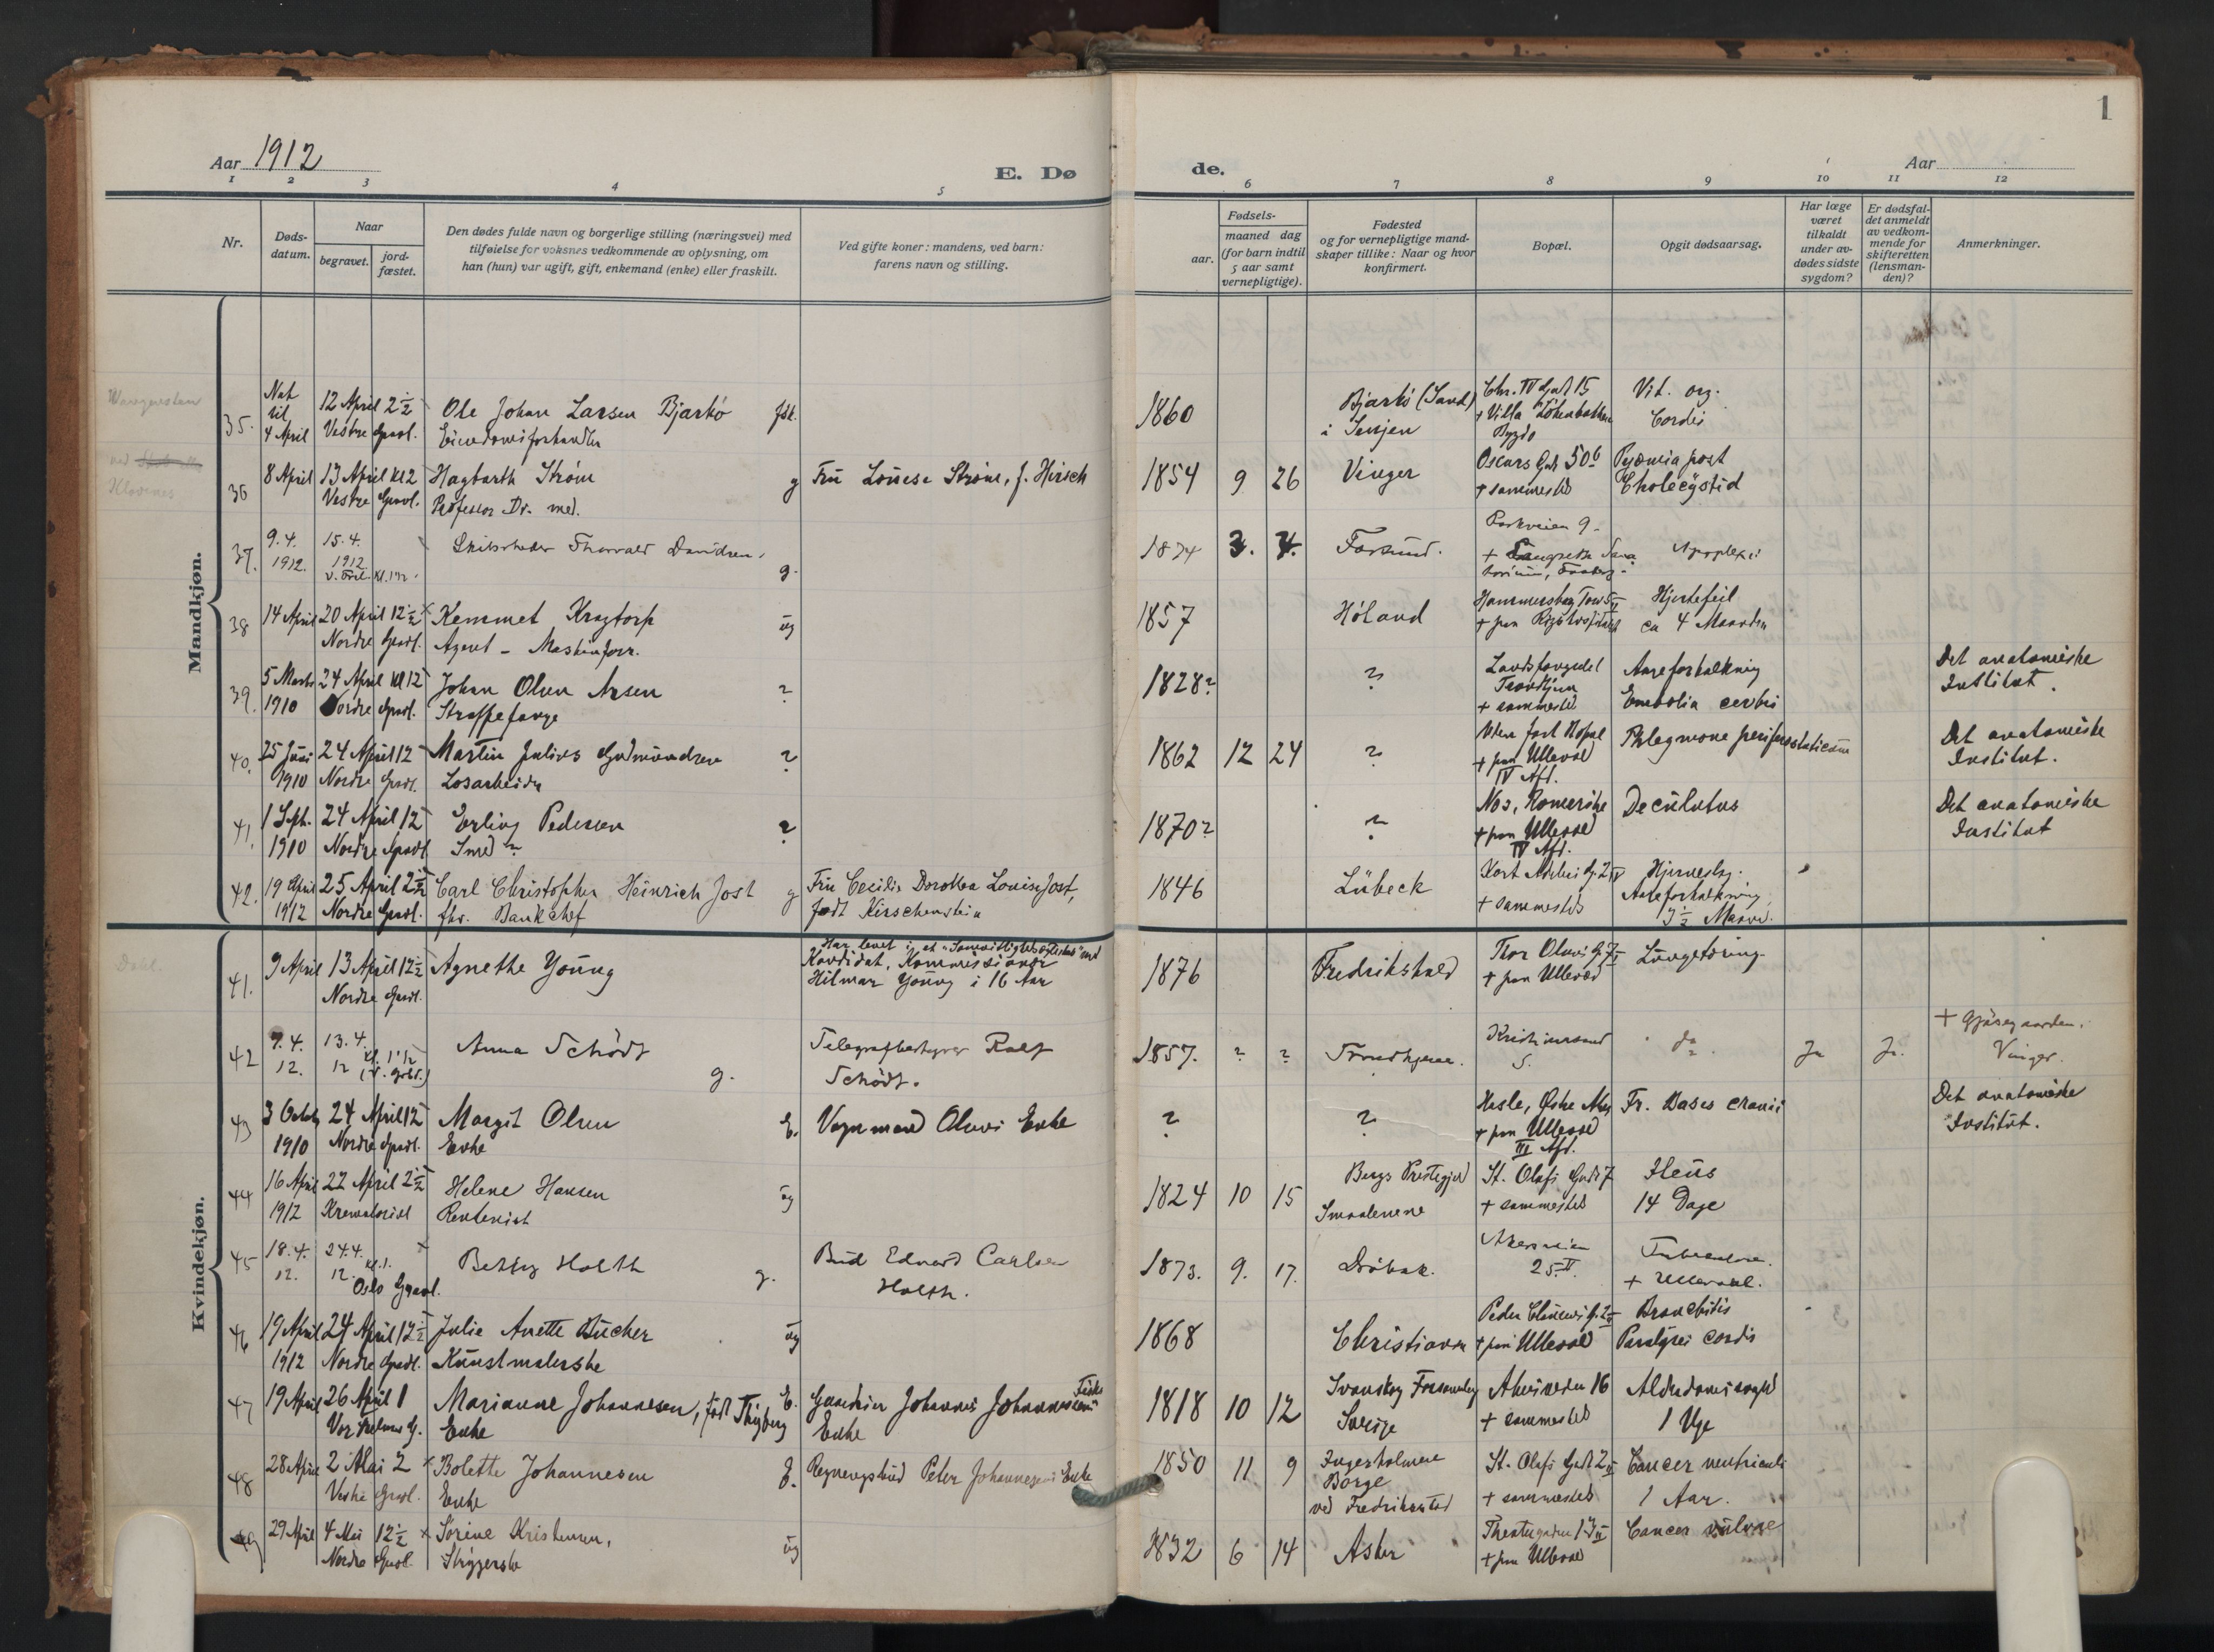 1
Aar 1912
E. Dø
de.
Aar
1 2 3 4 5 6 7 8 9 10 11 12
Nr.
Døds-
datum.
Naar
begravet.
jord-
fæstet.
Den dødes fulde navn og borgerlige stilling (næringsvei) med
tilføielse for voksnes vedkommende av oplysning, om
han (hun) var ugift, gift, enkemand (enke) eller fraskilt.
Ved gifte koner: mandens, ved barn:
farens navn og stilling.
Fødsels-
aar.
maaned dag
(for barn indtil
5 aar samt
vernepligtige).
Fødested
og for vernepligtige mand-
skaper tillike: Naar og hvor
konfirmert.
Bopæl.
Opgit dødsaarsag.
Har læge
været
tilkaldt
under av-
dødes sidste
sygdom?
Er dødsfal-
det anmeldt
av vedkom-
mende for
skifteretten
(lensman-
den)?
Anmerkninger.
Mandkjøn.
35. Nat til 4 April 12 April 2½ Ole Johan Larsen Bjarkö fsk. 1860 Bjarkö (Sand) Chr. IV Gad 15 Vit. org.
Vestre Gravl. Eiendomsforhandler i Senjen + Villa Bygdø Cordis
36 8 April 13 April Kl 2 Hagbarth Ström g Fru Louise Ström, f. Hirsch 1854 9 26 Vinger Oscars Gd. 50 Pyæmia post
Vestre Gravl. Professor Dr. med. + sammesteds Cholecystid
37. 9.4. 1912. 15.4. 1912 Skibsreder Thorvald Davidsen. g. 1874 3. 4. Farsund. Parkveien 9. Apoplexi
38 14 April 20 April 12½ Kemmet Krogtorp ug 1857 Höland Hammersborg Torv 5 Hjertefeil
Nordre Gravl. Agent - Maskinforr. + paa Rigshospitalet ca 4 Maaneder
39. 5 Marts 24 April Kl 12 Johan Olsen Aasen ? 1828? ? Landsfængslet Aareforkalkning Det anatomiske
1910 Nordre Gravl. Straffefange Trondhjem + sammesteds Embolia cerebri Institut.
40. 25 Juni 24 April 12 Martin Julius Gudmundsen ? 1862 12 24 ? Uten fast Bopæl Phlegmone Det anatomiske
1910 Nordre Gravl. Løsarbeider + paa Ullevaal IV Afd. Institut.
41. 1 Sept. 24 April 12 Erling Pedersen ? 1870? ? Nes, Romerike Decubitus Det anatomiske
1910 Nordre Gravl. Smed? + paa Ullevaal IV Afd. Institut
42. 19 April 25 April 2½ Carl Christopher Heinrich Jost g Fru Cecilie Dorothea Louise Jost, 1846 Lübeck Kort Adelers G. 2 Hjernesyg.
1912 Nordre Gravl. fhv. Bankchef født Kirschenstein + sammesteds Aareforkalkning,
Kvindekjøn.
41. 9 April 13 April 12½ Agnethe Young Har levet i et med 1876 Fredrikshald Thor Olsens G. 7 Lungetæring
Nordre Gravl. Kandidat, Kommissionær Hilmar Young i 16 Aar + paa Ullevaal
42 9.4. 12. 13.4. 12 Kl. 1½ Anna Schödt g. Telegrafbestyrer Rolf Schödt. 1857. ? ? Trondhjem. Kristiansand S. Ja Ja. + Gjøsegaarden.
Vinger.
43 3 Octob. 24 April 12 Margit Olsen E. Vognmand Olsens Enke ? ? Hasle, Østre Aker Fr. Basis cranii Det anatomiske
1910 Nordre Gravl. Enke + paa Ullevaal III Afd. Institut.
44 16 April 22 April 2½ Helene Hansen ug 1824 10 15 Bergs Prestegjeld St. Olafs Gade 7 Ileus
1912 Krematoriet Rentenist Smaalenene + sammesteds 14 Dage
45 18.4. 12. 24.4. 12. Kl. 1. Betzy Holth g. Bud Edvard Carlsen 1873. 9. 17. Dröbak. Akersveien 25. II
Oslo Gravl. Holth. + Ullevaal.
46 19 April 24 April 12½ Julie Anette Bücher ug 1868 Christiania Peder Clausens G. 2 Bronchitis
1912 Nordre Gravl. Kunstmalerske + paa Ullevaal Paralysis cordis
47 19 April 26 April 1 Marianne Johannesen, født E. Gaardeier Johannes Johannessens 1818 10 12 Svanskog Forsamling Akersveien 16 Alderdomssvaghed
Vor Frelsers G. Enke Enke Sverige + sammesteds 1 Uge
48 28 April 2 Mai 2 Bolette Johannesen E. Regningsbud Peter Johannesens Enke 1850 11 9 Ingerholmene St. Olafs Gade 2 Cancer ventriculi
Vestre Gravl. Enke Borge ved Fredrikstad + sammesteds 1 Aar.
49 29 April 4 Mai 12½ Sorine Kristensen, ug 1832 6 14 Asker Theatergaden Cancer vulvae
Nordre Gravl. Strygerske + paa Ullevaal